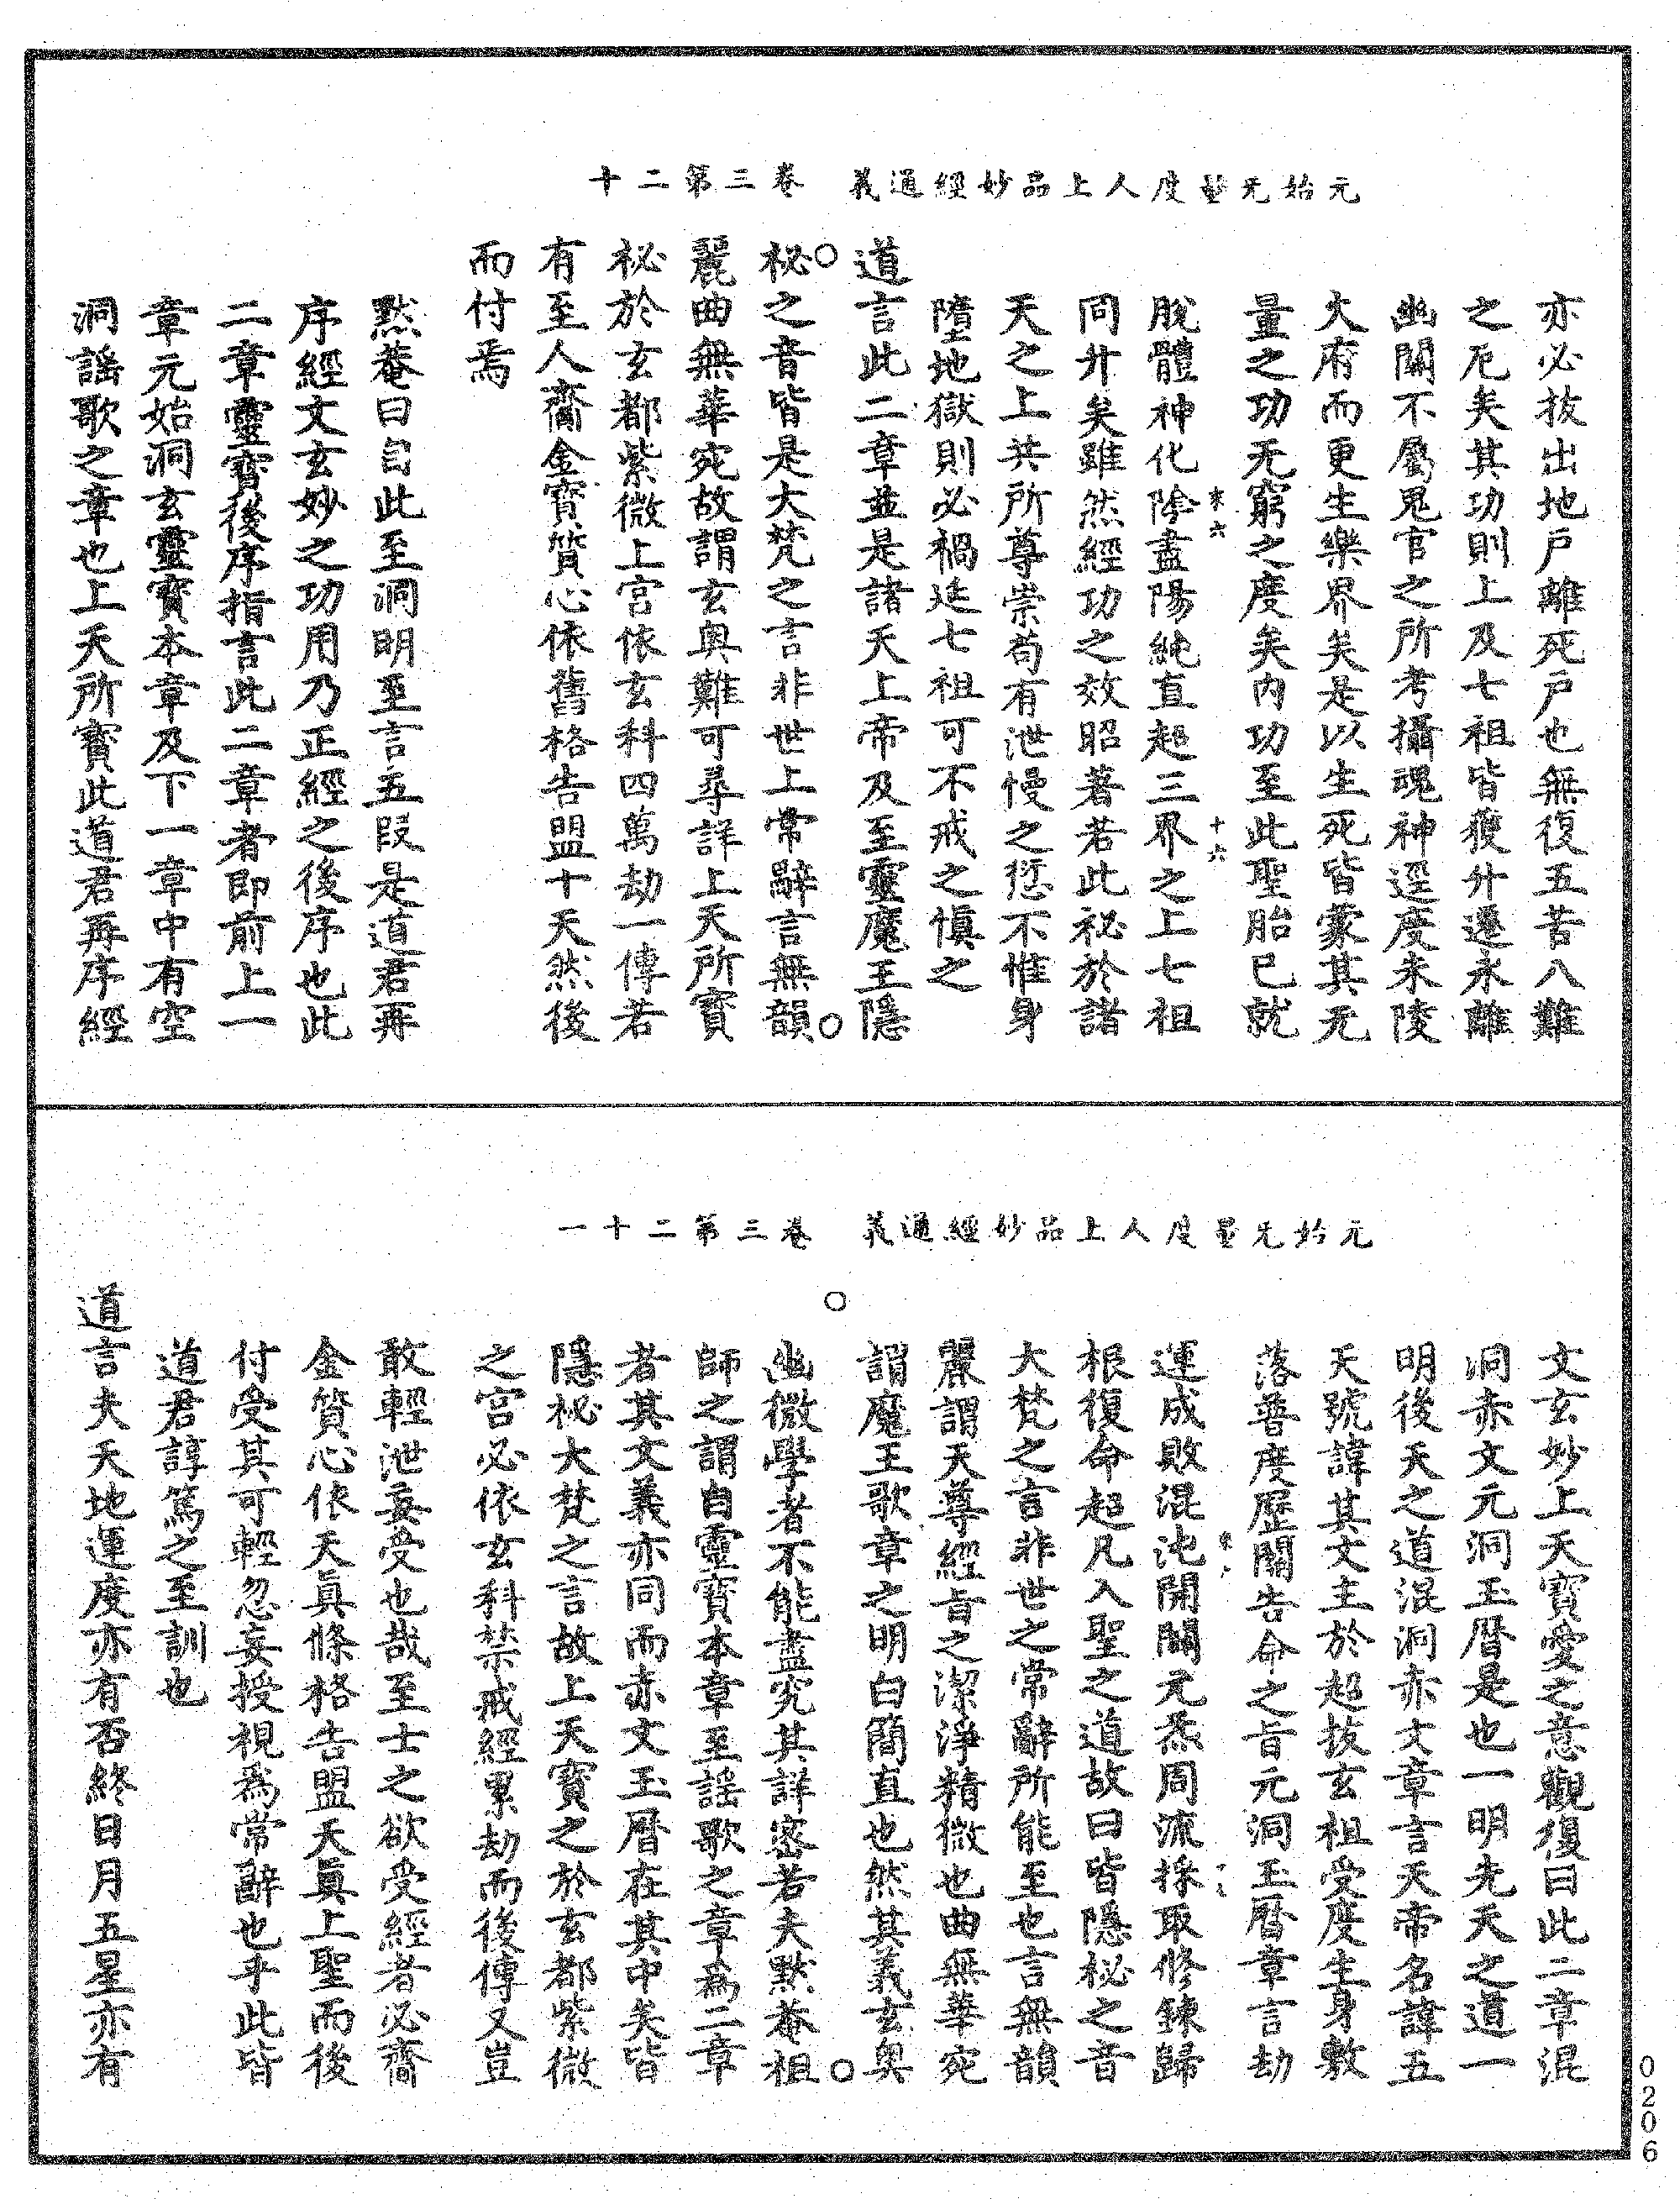 元始无量度人上品妙經通義　卷三第二十
亦必拔出地戶離死戶也無復五苦八難
之厄矣其功則上及七祖皆獲升遷永離
幽關不屬鬼官之所考攝魂神逕度朱陵
大府而更生樂界矣是以生死皆蒙其无
量之功无窮之度矣內功至此聖胎已就
脫體神化陰盡陽純直超三界之上七祖
同升矣雖然經功之效昭著若此祕於諸
天之上共所尊崇苟有泄慢之愆不惟身
墮地獄則必禍延七祖可不戒之慎之
道言此二章並是諸天上帝及至靈魔王隱
祕之音皆是大梵之言非世上常辭言無韻
麗曲無華宛故謂玄奧難可尋詳上天所寶
祕於玄都紫微上宮依玄科四萬劫一傳若
有至人齎金寶質心依舊格告盟十天然後
而付焉
黙菴曰自此至洞明至言五段是道君再
序經文玄妙之功用乃正經之後序也此
二章靈寶後序指言此二章者即前上一
章元始洞玄靈寶本章及下一章中有空
洞謠歌之章也上天所寶此道君再序經
元始无量度人上品妙經通義　卷三第二十一
文玄妙上天寶愛之意觀復曰此二章混
洞赤文元洞玉曆是也一明先天之道一
明後天之道混洞赤文章言天帝名諱五
天號諱其文主於超拔玄祖受度生身敷
落普度歷關告命之旨元洞玉曆章言劫
運成敗混沌開闢元炁周流採取修鍊歸
根復命超凡入聖之道故曰皆隱祕之音
大梵之言非世之常辭所能至也言無韻
麗謂天尊經旨之潔淨精微也曲無華宛
謂魔王歌章之明白簡直也然其義玄奧
幽微學者不能盡究其詳密若夫黙菴祖
師之謂自靈寶本章至謠歌之章為二章
者其文義亦同而赤文玉曆在其中矣皆
隱祕大梵之言故上天寶之於玄都紫微
之宮必依玄科禁戒經累劫而後傳又豈
敢輕泄妄受也哉至士之欲受經者必齎
金質心依天眞條格告盟天眞上聖而後
付受其可輕忽妄授視為常辭也乎此皆
道君諄篤之至訓也
道言夫天地運度亦有否終日月五星亦有
0206